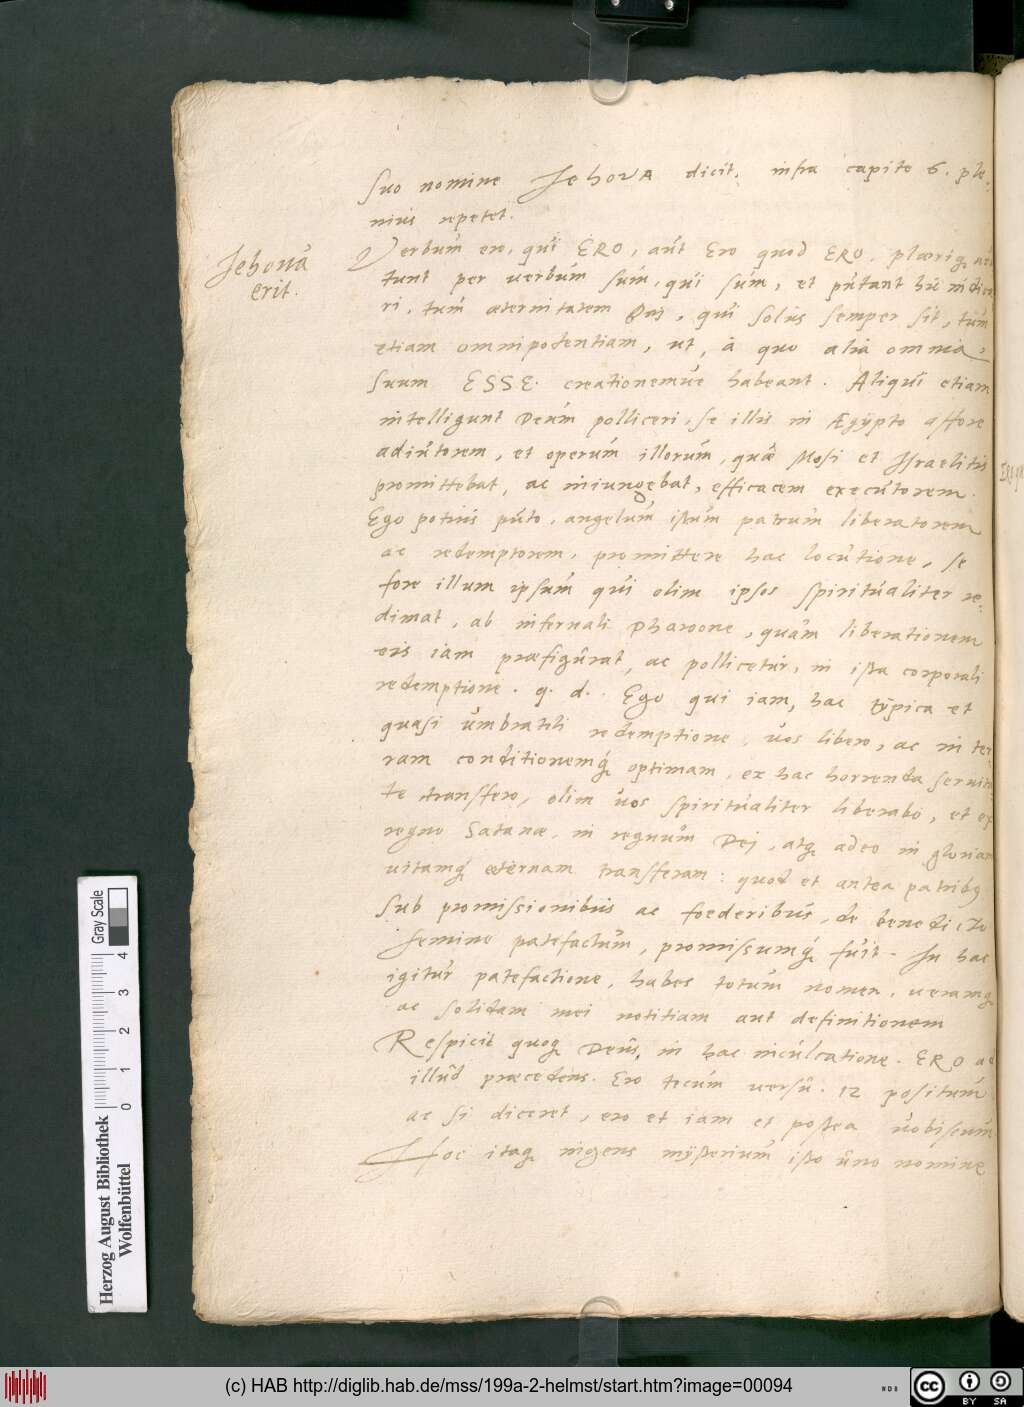 Suo nomine JehovA dicit, infra capite 6. ple-
nius repetet.
Jehoua
erit.
Verbum ero, qui ERO, aut Ero quod ERO, plæriq
tunt per uerbum sum, qui sum, et putant hic indica
ri, tum æternitatem Dei, qui solus semper sit, tum
etiam omnipotentiam, ut, à quo alia omnia,
suum ESSE creationemue habeant. Aliqui etiam
intelligunt Deum polliceri, se illis in Ægypto affore
adiutorem, et operum illorum, quæ Mosi et Israelitis
promittebat, ac iniungebat, efficacem executorem.
Ego potius puto, angelum istum patrum liberatorem
ac redemptorem, promittere hac locutione, se
fore illum ipsum qui olim ipsos spiritualiter re-
dimat, ab infernali Pharaone, quam liberationem
eis iam præfigurat, ac pollicetur, in ista corporali
redemptione. q. d. Ego qui iam, hac typica et
quasi umbratili redemptione, uos libero, ac in ter
ram conditionemq optimam, ex hac horrenda serui
te transfero, olim uos spiritualiter liberabo, et ex
regno Satanæ, in regnum Dei, atq adeo in gloriam
uitamq æternam transferam: quod et antea patribq
sub promissionibus ac foederibus, de benedicto
semine patefactum, promissumq fuit. In hac
igitur patefactione, habes totum nomen, ueramq
ac solidam mei notitiam aut definitionem
Respicit quoq Deus, in hac inculcatione. ERO ac
illud præcedens. Ero tecum uersu. 12 positum
ac si diceret, ero et iam et postea uobiscum
Hoc itaq ingens mysterium isto uno nomine
Herzog August Bibliothek
Wolfenbüttel
Gray Scale
0 1 2 3 4
(c) HAB http://diglib.hab.de/mss/199a-2-helmst/start.htm?image=00094
cc BY SA